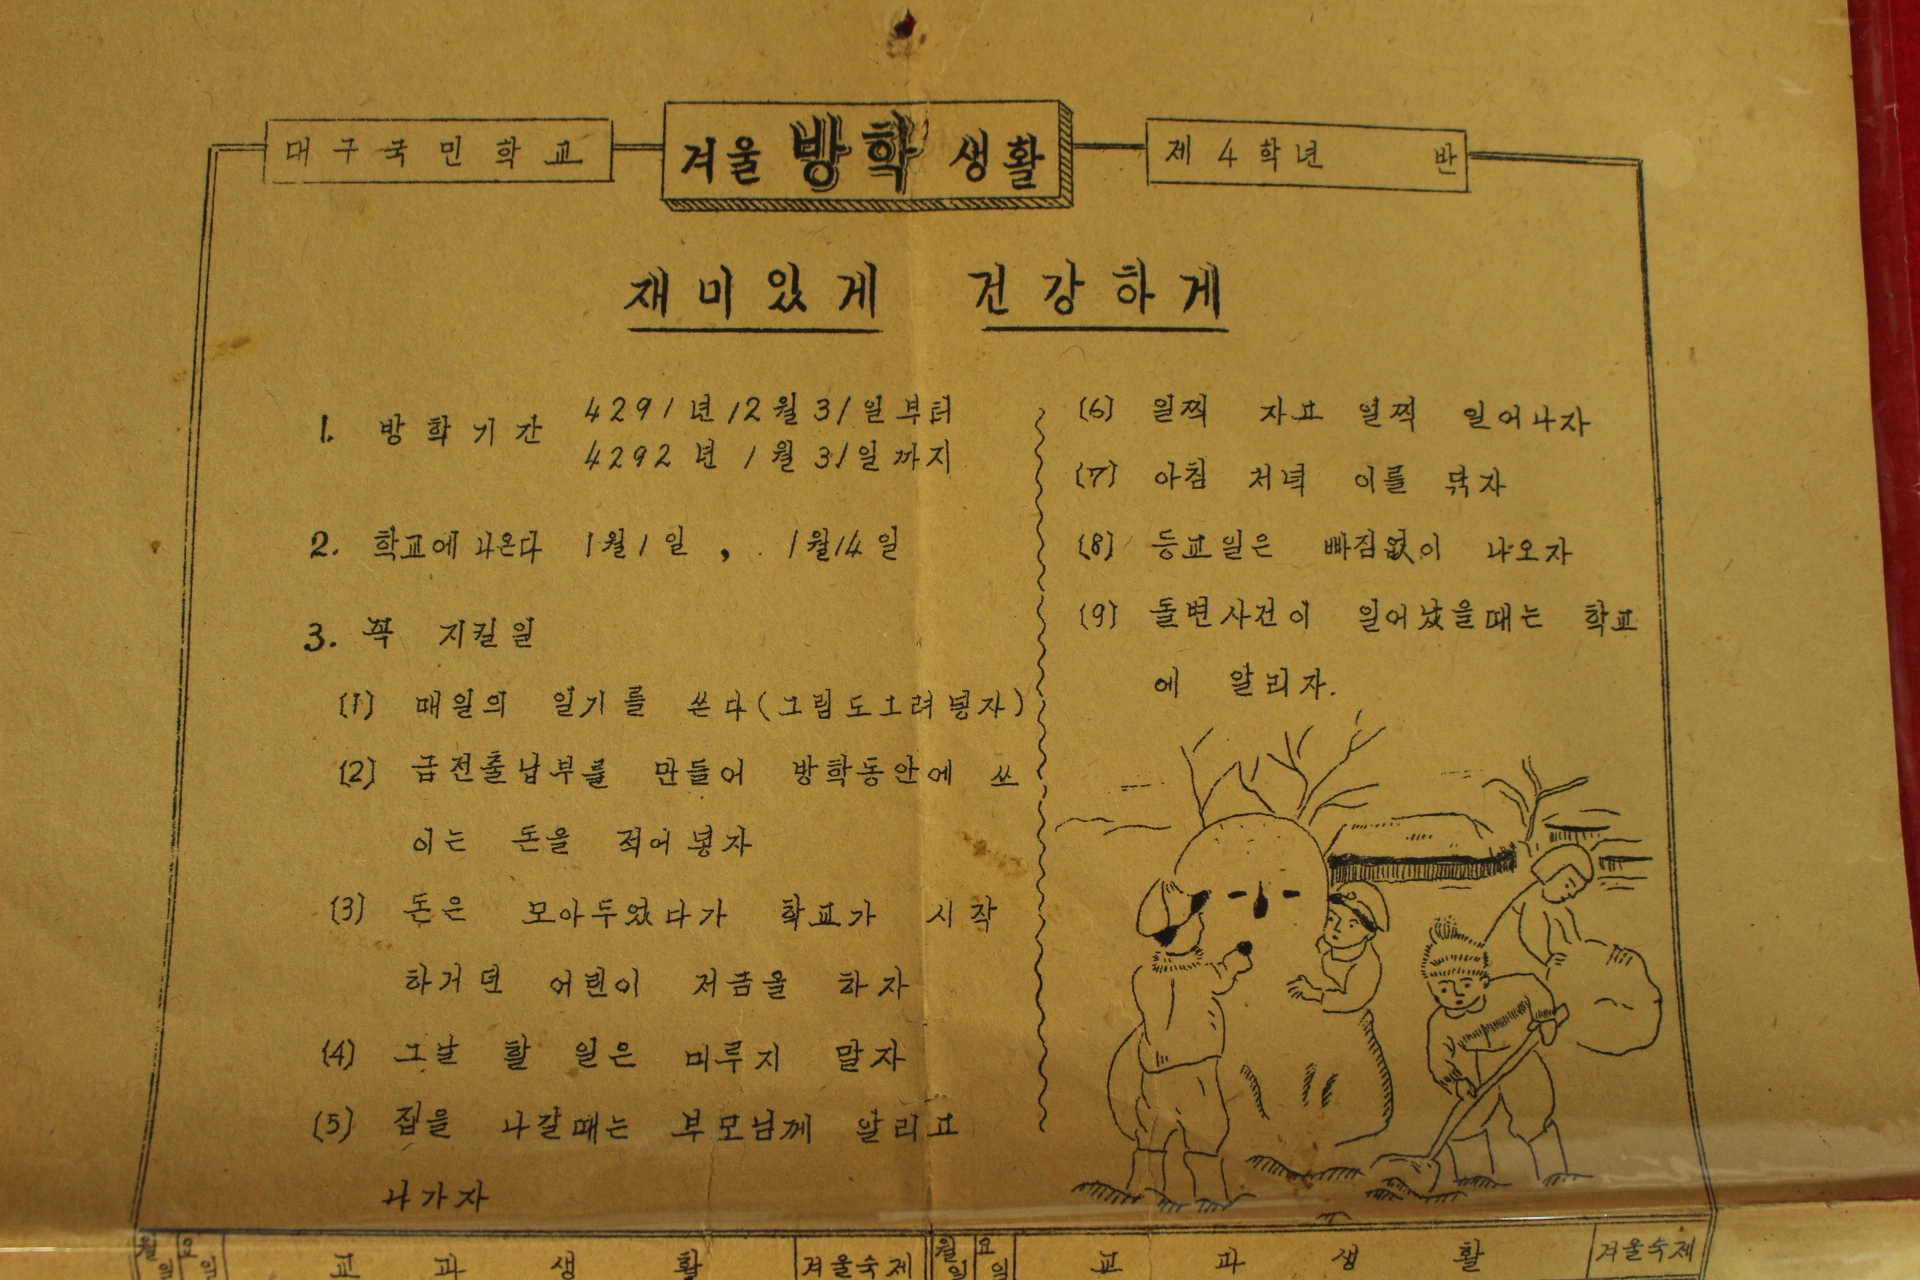 대구국민학교
겨울 방학 생활
제4학년 반
재미있게 건강하게
1. 방학기간 4291년 12월 31일부터
4292년 1월 31일까지
2. 학교에 나온다 1월1일, 1월14일
3. 꼭 지킬일
(1) 매일의 일기를 쓴다(그림도 그려 넣자)
(2) 금전출납부를 만들어 방학동안에 쓰
이는 돈을 적어 넣자
(3) 돈은 모아두었다가 학교가 시작
하거던 어린이 저금을 하자
(4) 그날 할 일은 미루지 말자
(5) 집을 나갈때는 부모님께 알리고
나가자
(6) 일찍 자고 일찍 일어나자
(7) 아침 저녁 이를 닦자
(8) 등교일은 빠짐없이 나오자
(9) 돌변사건이 일어났을때는 학교
에 알리자.
월일 요일 교과생활 겨울숙제 월일 요일 교과생활 겨울숙제